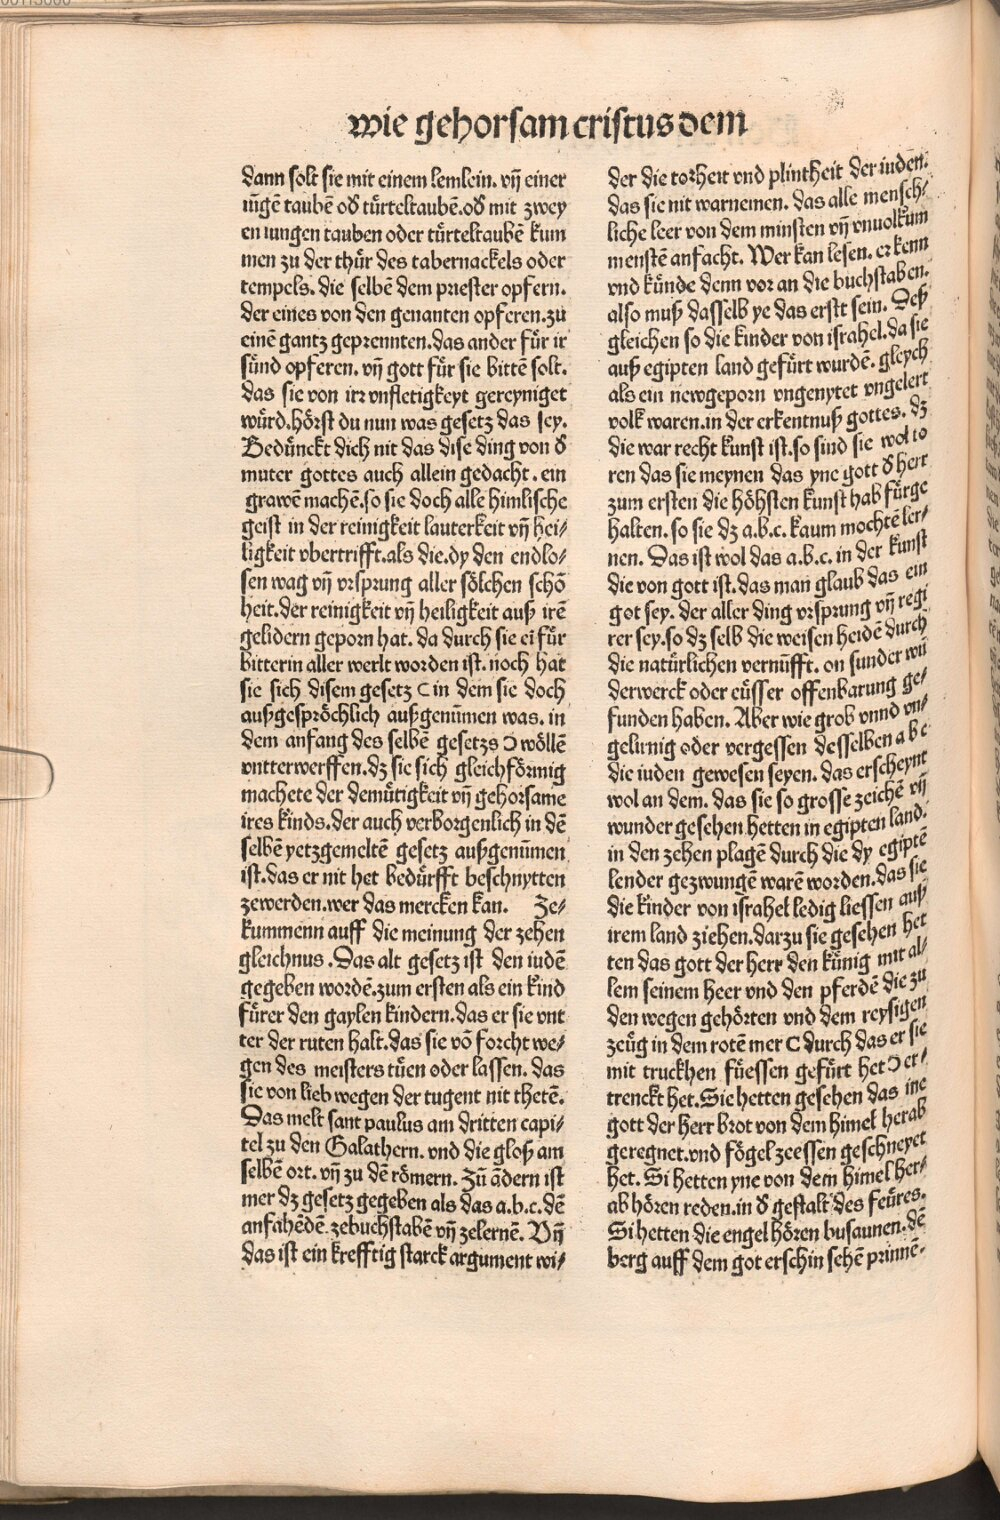 wie gehorsam cristus dem
dann solt sie mit einem lemlein. vñ einer
iũgē taubē oď türteltaubē. oď mit zwey
en iungen tauben oder türteltaubē kum
men zu der thür des tabernackels oder
tempels. die selbē dem priester opfern.
der eines von den genanten opferen. zu
einē gantz geprennten. das ander für ir
sünd opferen. vñ gott für sie bittē solt.
das sie von irr vnfletigkeyt gereyniget
würd. hörst du nun was gesetz das sey.
Bedünckt dich nit das dise ding von ď
muter gottes auch allein gedacht. ein
grawē machē. so sie doch alle himlische
geist in der reinigkeit lauterkeit vñ hei⸗
ligkeit vbertrifft. als die. dy den endlo⸗
sen wag vñ vrsprung aller sölchen schō
heit. der reinigkeit vñ heiligkeit auß irē
gelidern geporn hat. da durch sie ei für
bitterin aller werlt worden ist. noch hat
sie sich disem gesetz ⊂ in dem sie doch
außgespröchlich außgenũmen was. in
dem anfang des selbē gesetzs Ɔ wöllē
vntterwerffen. dz sie sich gleichförmig
machete der demütigkeit vñ gehorsame
ires kinds. der auch verborgenlich in dē
selbē yetzgemeltē gesetz außgenũmen
ist. das er nit het bedürfft beschnytten
zewerden. wer das mercken kan. Ze⸗
kummenn auff die meinung der zehen
gleichnus. Das alt gesetz ist den iudē
gegeben wordē. zum ersten als ein kind
fürer den gaylen kindern. das er sie vnt
ter der ruten halt. das sie vō forcht we⸗
gen des meisters tüen oder lassen. das
sie von lieb wegen der tugent nit thetē.
Das melt sant paulus am dritten capi⸗
tel zu den Galathern. vnd die gloß am
selbē ort. vñ zu dē römern. Zũ ādern ist
mer dz gesetz gegeben als das a.b.c. dē
anfahēdē. zebuchstabē vñ zelernē. Vñ
das ist ein krefftig starck argument wi⸗
der die torheit vnd plintheit der iuden.
das sie nit warnemen. das alle mensch⸗
liche leer von dem minsten vñ vnuolkum
menstē anfacht. Wer kan lesen. er kenn
vnd künde denn vor an die buchstaben.
also muß dasselb ye das erstt sein. Deß
gleichen so die kinder von israhel. da sie
auß egipten land gefürt wurdē. gleych
als ein newgeporn vngenytet vngelert
volk waren. in der erkentnuß gottes. dz
die war recht kunst ist. so sind sie wol to
ren das sie meynen das yne gott ď herr
zum ersten die höhsten kunst hab fürge
halten. so sie dz a.b.c. kaum mochtē ler⸗
nen. Das ist wol das a.b.c. in der kunst
die von gott ist. das man glaub das ein
got sey. der aller ding vrsprung vñ regi
rer sey. so dz selb die weisen heidē durch
die natürlichen vernũfft. on sunder wũ
derwerck oder eüsser offenbarung ge⸗
funden haben. Aber wie grob vnnd vn⸗
gelirnig oder vergessen desselben a b c
die iuden gewesen seyen. das erscheynt
wol an dem. das sie so grosse zeichē vñ
wunder gesehen hetten in egipten land.
in den zehen plagē durch die dy egiptē
lender gezwungē warē worden. das sie
die kinder von israhel ledig liessen auß
irem land ziehen. darzu sie gesehen het
ten das gott der herr den künig mit al⸗
lem seinem heer vnd den pferdē die zu
den wegen gehörten vnd dem reysigen
zeüg in dem rotē mer ⊂ durch das er sie
mit truckhen füessen gefürt het Ɔ er⸗
trenckt het. Sie hetten gesehen das ine
gott der herr brot von dem himel herab
geregnet. vnd fögel zeessen geschneyet
het. Si hetten yne von dem himel her⸗
ab hören reden. in ď gestalt des feüres.
Si hetten die engel hören busaunen. dē
berg auff dem got erschin sehē prinnē.